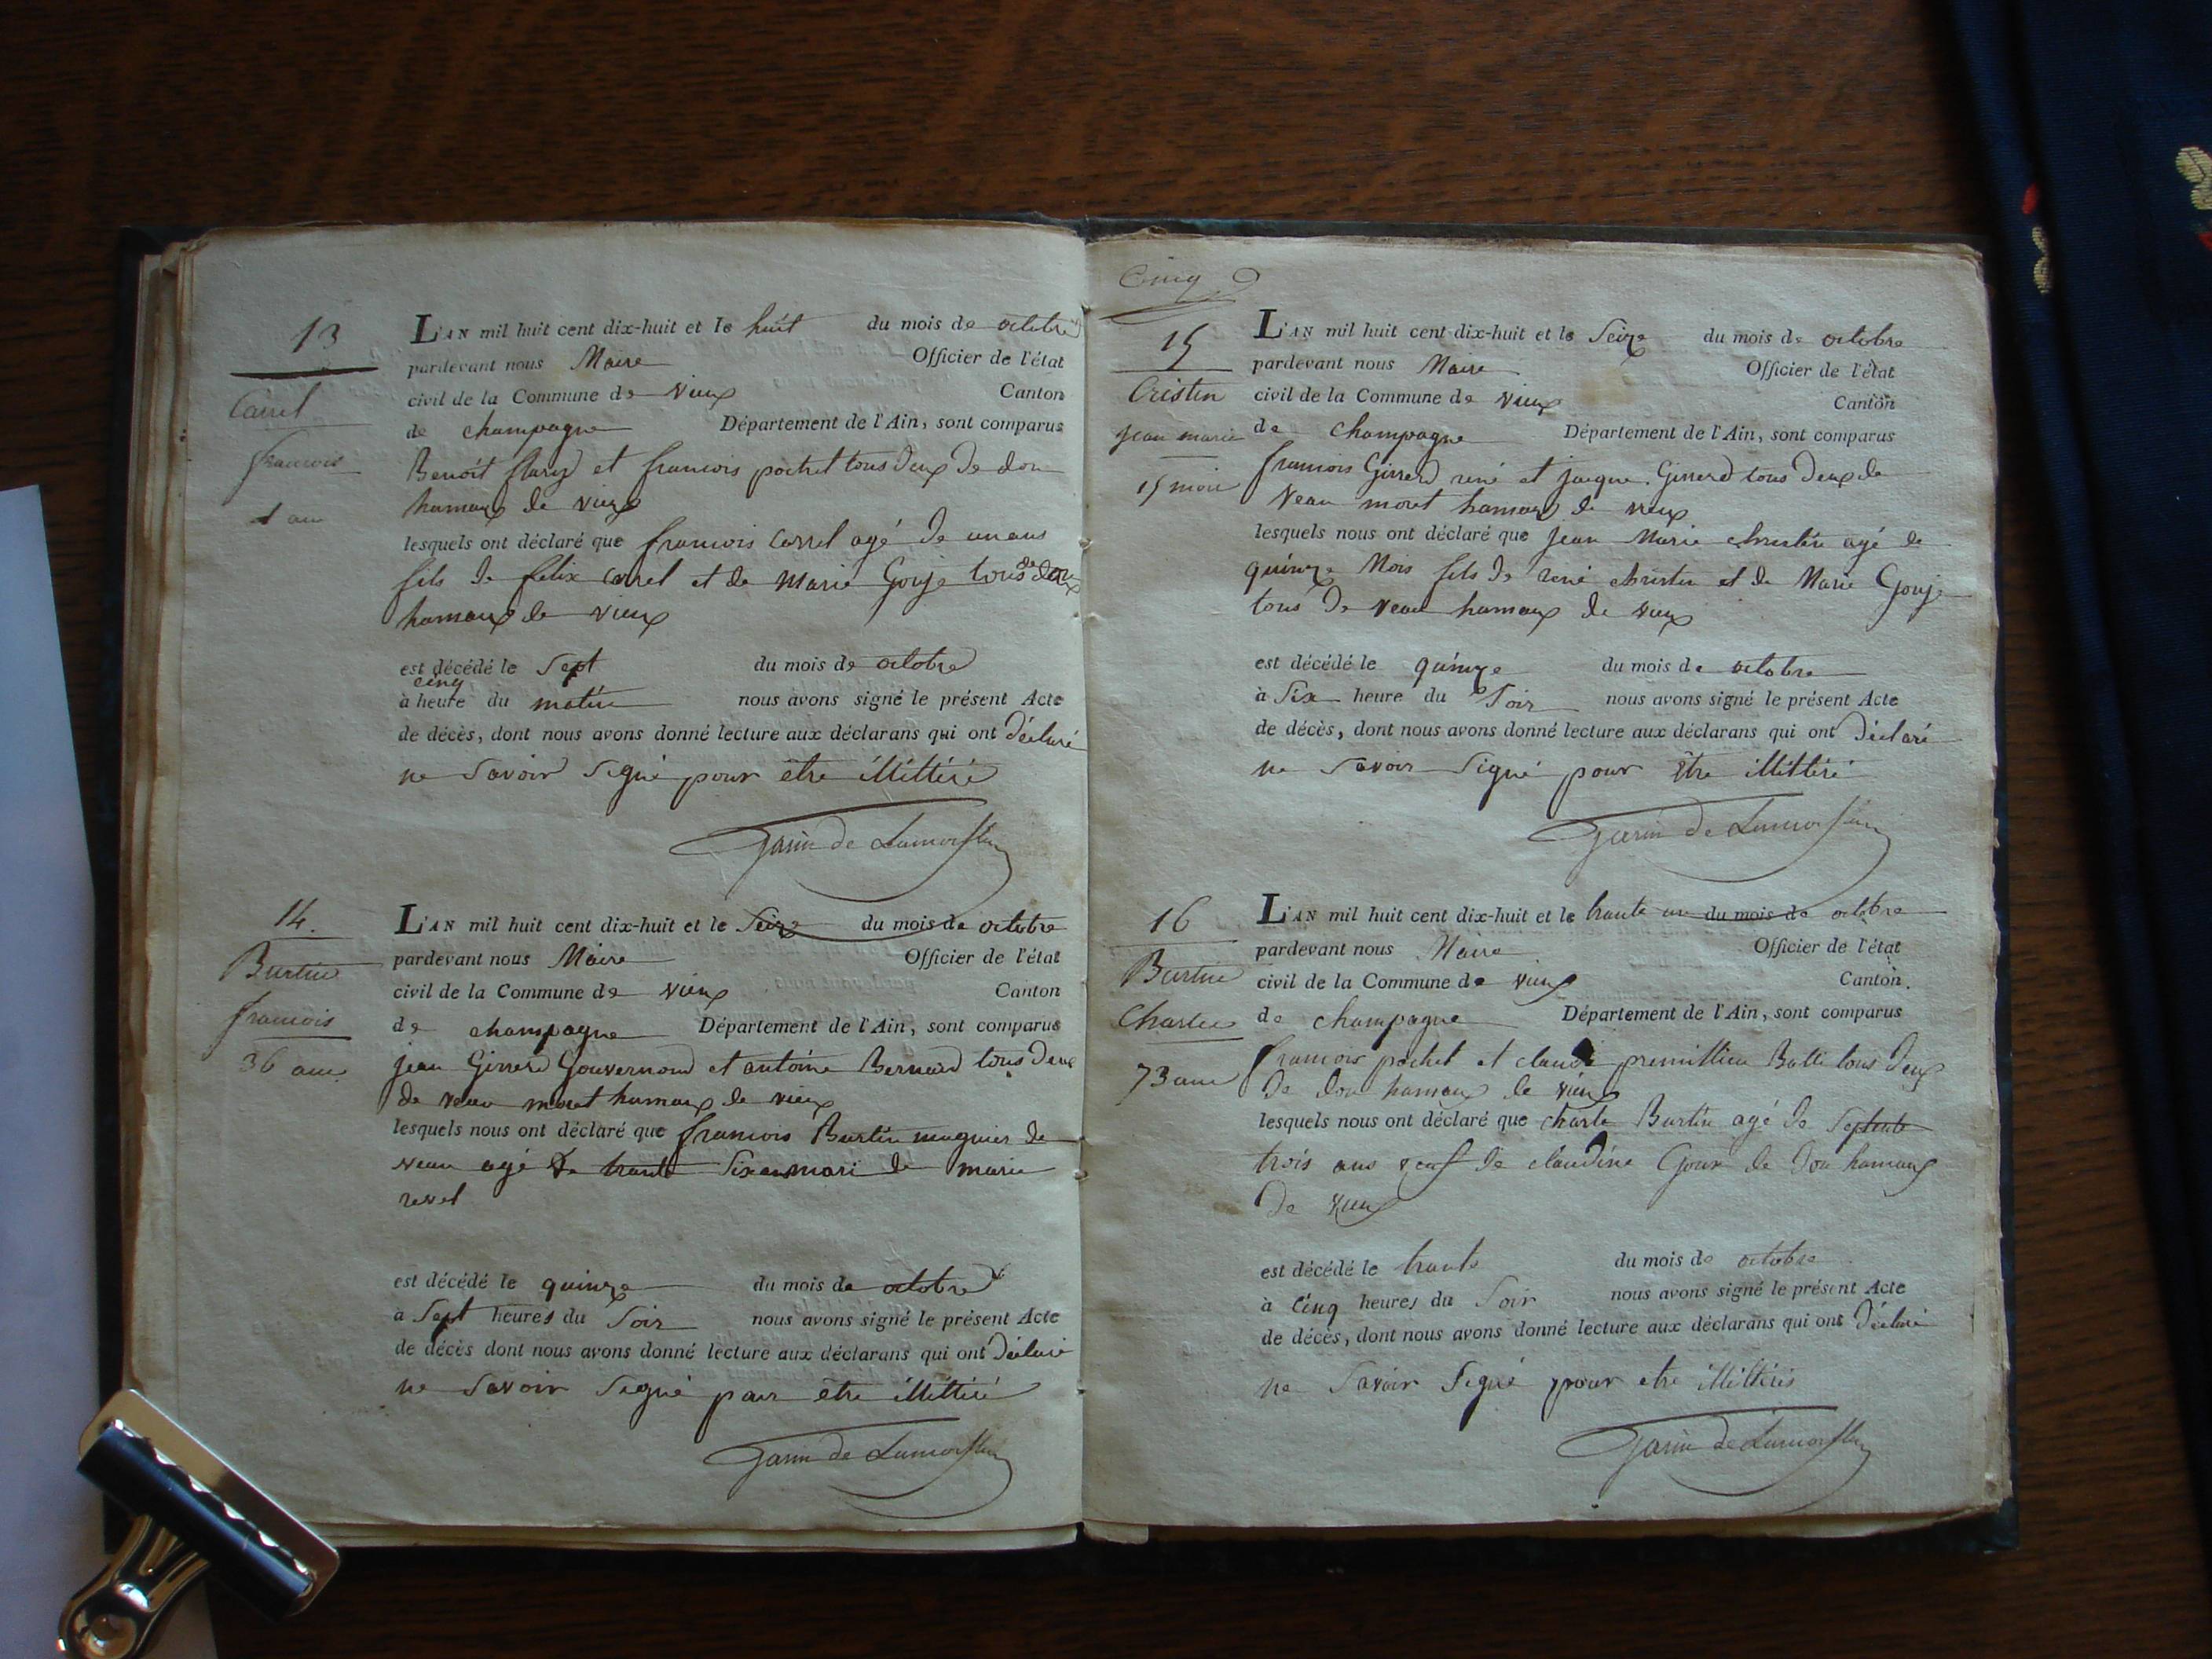 13
Carrel
francois
1 an
L'AN mil huit cent dix-huit et le huit du mois de octobre
pardevant nous Maire Officier de l'état
civil de la Commune de vieux Canton
de champagne Département de l'Ain, sont comparus
Benoit et francois pochet tous deux de don
hamaux de vieux
lesquels ont déclaré que francois Carrel agé de un ans
fils de felix carrel et de Marie Gouje tous de don
hamaux de vieux
est décédé le Sept du mois de octobre
cinq
à heure du matin nous avons signé le présent Acte
de décès, dont nous avons donné lecture aux déclarans qui ont déclaré
ne Savoir Signé pour être illittéré
Garin de Lamorflan
14.
Burtin
francois
36 ans
L'AN mil huit cent dix-huit et le Seize du mois de octobre
pardevant nous Maire Officier de l'état
civil de la Commune de vieux Canton
de champagne Département de l'Ain, sont comparus
jean Girrerd Gouvernond et antoine Bernard tous deux
de veau moret hamaux de vieux
lesquels nous ont déclaré que francois Burtin magnier de
veau agé de trante Six ans mari de marie
revel
est décédé le quinze du mois de octobre
à Sept heures du Soir nous avons signé le présent Acte
de décès dont nous avons donné lecture aux déclarans qui ont déclaré
ne Savoir Signé pour être illittéré
Garin de Lamorflan
Cinq
15
Cristin
jean marie
15 mois
L'AN mil huit cent-dix-huit et le Seize du mois de octobre
pardevant nous Maire Officier de l'état
civil de la Commune de vieux Canton
de Champagne Département de l'Ain, sont comparus
francois Girrerd rené et jacque Girrerd tous deux de
veau moret hamaux de vieux
lesquels nous ont déclaré que jean Marie christin agé de
quinze Mois fils de rené christin et de Marie Gouje
tous de veau hamaux de vieux
est décédé le quinze du mois de octobre
à Six heure du Soir nous avons signé le présent Acte
de décès, dont nous avons donné lecture aux déclarans qui ont déclaré
ne Savoir Signé pour être illittéré
Garin de Lamorflan
16
Burtin
Charles
73 ans
L'AN mil huit cent dix-huit et le trante un du mois de octobre
pardevant nous Maire Officier de l'état
civil de la Commune de vieux Canton.
de champagne Département de l'Ain, sont comparus
francois pochet et claude premillieu Batti tous deux
de don hamaux de vieux
lesquels nous ont déclaré que charle Burtin agé de Septente
trois ans veuf de claudine Goux de don hamaux
de vieux
est décédé le trante du mois de octobre
à Cinq heures du Soir nous avons signé le présent Acte
de décès, dont nous avons donné lecture aux déclarans qui ont déclaré
ne Savoir Signé pour etre illittérés
Garin de Lamorflan